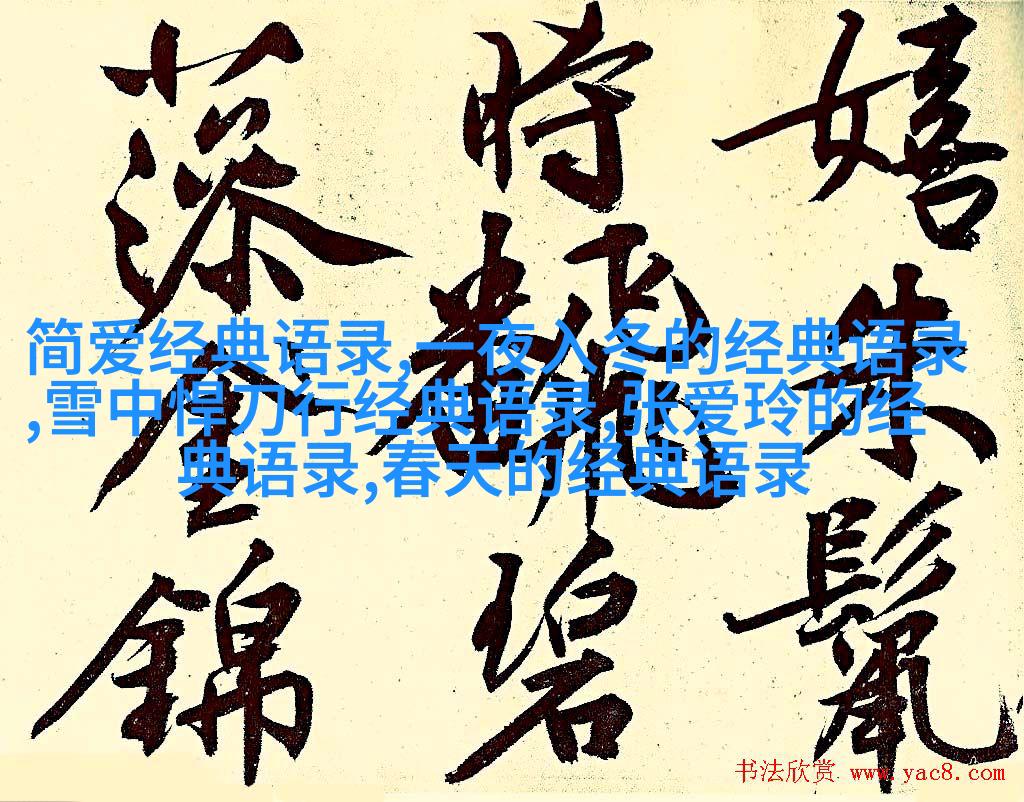 嬉朱鬣
時飜碧
錦
简爱经典语录,一夜入冬的经典语录
,雪中悍刀行经典语录,张爱玲的经
典语录,春天的经典语录
书法欣赏 www.yac8.com